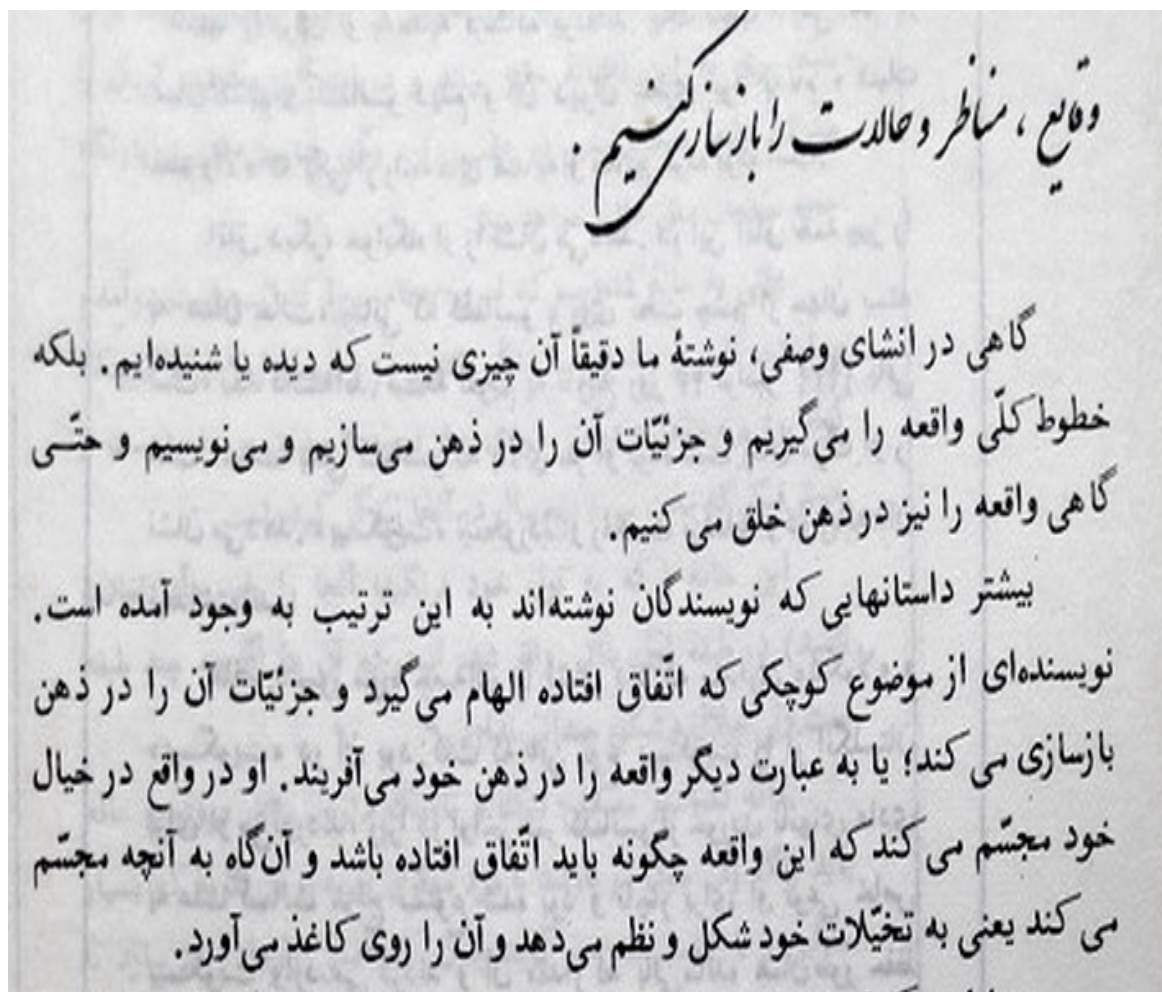 وقایع ، مناظر و حالات را بازسازی کنیم .
گاهی در انشای وصفی، نوشتهٔ ما دقیقاً آن چیزی نیست که دیده یا شنیده‌ایم. بلکه
خطوط کلّی واقعه را می‌گیریم و جزئیّات آن را در ذهن می‌سازیم و می‌نویسیم و حتّی
گاهی واقعه را نیز در ذهن خلق می کنیم.
بیشتر داستانهایی که نویسندگان نوشته‌اند به این ترتیب به وجود آمده است.
نویسنده‌ای از موضوع کوچکی که اتّفاق افتاده الهام می‌گیرد و جزئیّات آن را در ذهن
بازسازی می کند؛ یا به عبارت دیگر واقعه را در ذهن خود می‌آفریند. او در واقع در خیال
خود مجسّم می کند که این واقعه چگونه باید اتّفاق افتاده باشد و آن‌گاه به آنچه مجسّم
می کند یعنی به تخیّلات خود شکل و نظم می‌دهد و آن را روی کاغذ می‌آورد.